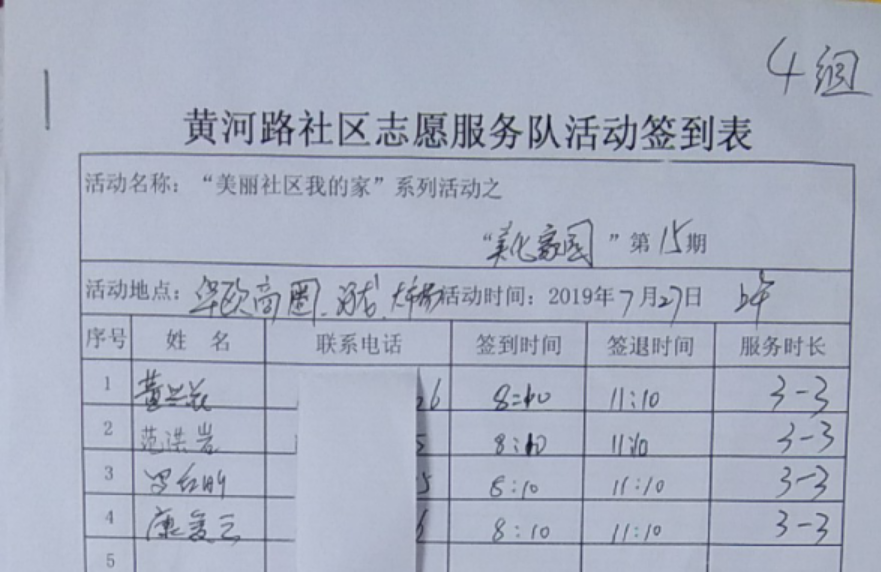 4组
黄河路社区志愿服务队活动签到表
活动名称：“美丽社区我的家”系列活动之
“美化家园”第15期
活动地点：华欧商圈、 活动时间：2019年7月27日 上午
序号 姓名 联系电话 签到时间 签退时间 服务时长
1 董兰花 26 8:10 11:10 3-3
2 范洪岩 8:10 11:10 3-3
3 5 8:10 11:10 3-3
4 康复云 8:10 11:10 3-3
5